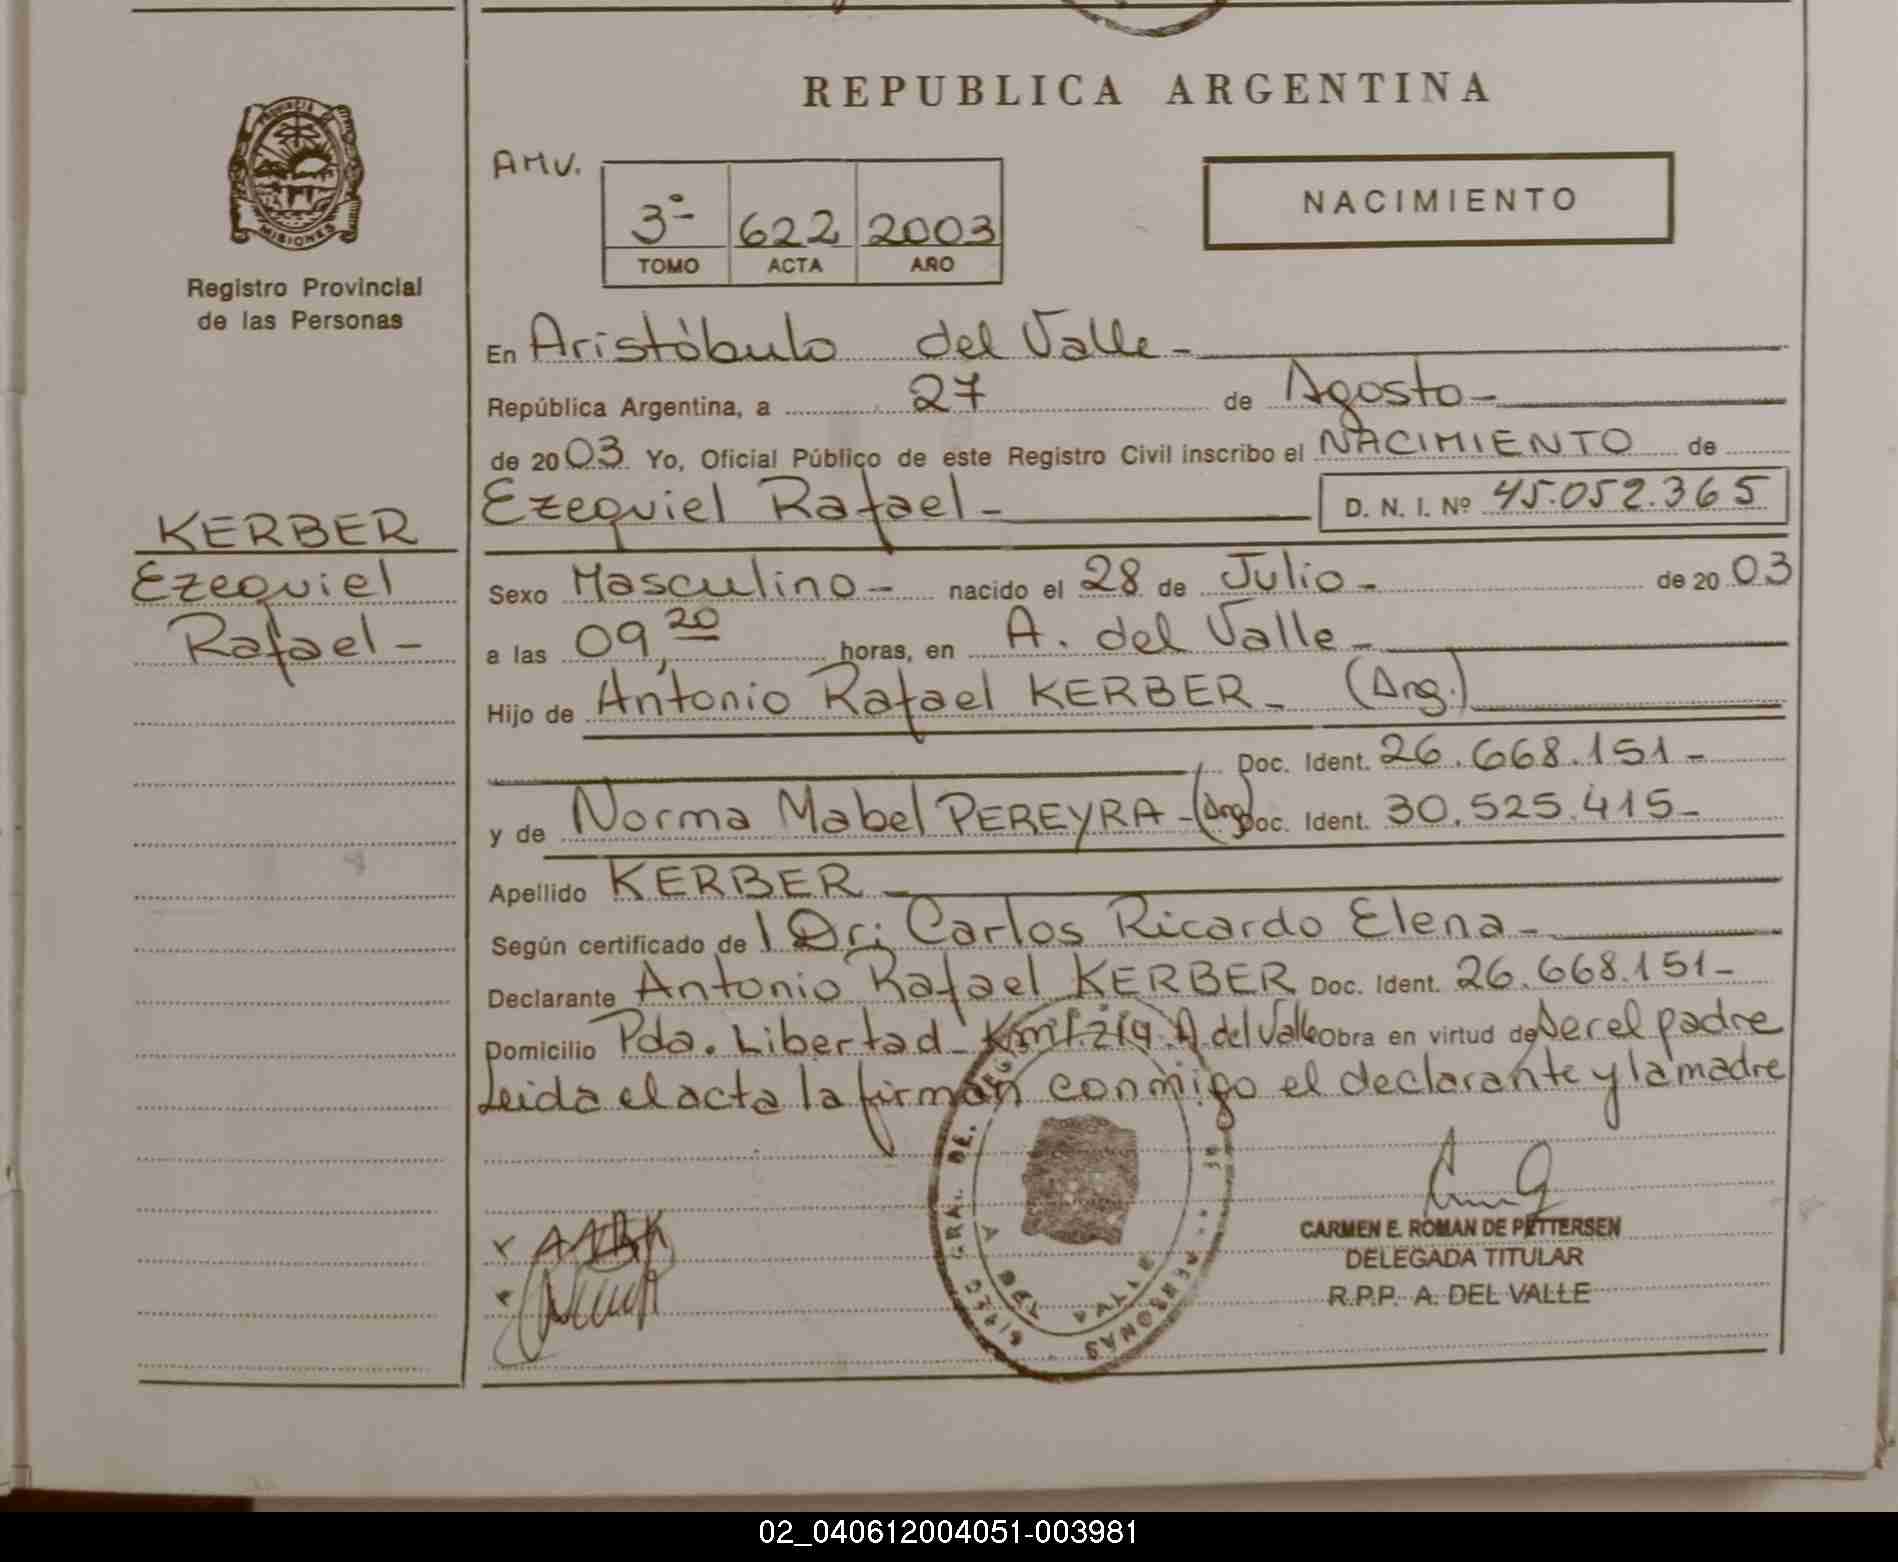 REPUBLICA ARGENTINA
PROVINCIA
MISIONES
Registro Provincial
de las Personas
AMV.
NACIMIENTO
3º- 622 2003
TOMO ACTA AÑO
En Aristóbulo del Valle-
República Argentina, a 27 de Agosto-
de 2003 Yo, Oficial Público de este Registro Civil inscribo el NACIMIENTO de
Ezequiel Rafael- D. N. I. Nº 45.052.365
KERBER
Ezequiel
Rafael-
Sexo Masculino- nacido el 28 de Julio- de 2003
a las 09,20 horas, en A. del Valle-
Hijo de Antonio Rafael KERBER- (Arg.)
Doc. Ident. 26.668.151-
y de Norma Mabel PEREYRA-(Arg) Doc. Ident. 30.525.415-
Apellido KERBER-
Según certificado de l Dr: Carlos Ricardo Elena-
Declarante Antonio Rafael KERBER Doc. Ident. 26.668.151-
Domicilio Pda. Libertad- A. del Valle obra en virtud de ser el padre
Leida el acta la firman conmigo el declarante y la madre
CARMEN E. ROMAN DE PETTERSEN
DELEGADA TITULAR
R.P.P. A. DEL VALLE
GRAL. DE
PERSONAS
A. DEL VALLE
02_040612004051-003981